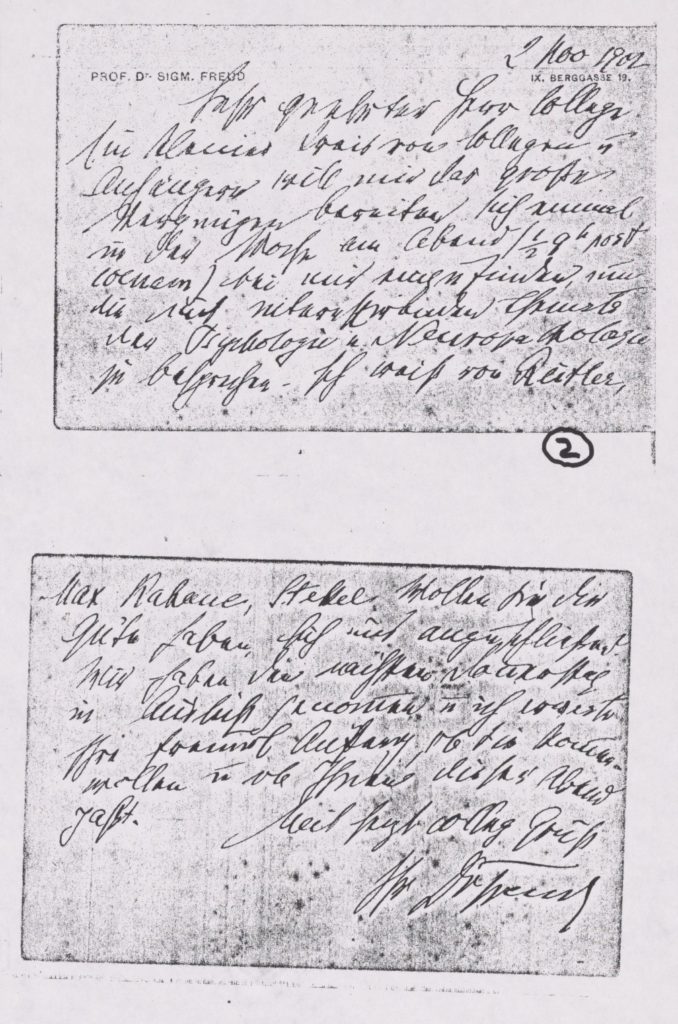 2 Nov 1902
PROF. Dr. SIGM. FREUD
IX. BERGGASSE 19.
Sehr geehrter Herr College
Ein kleiner Kreis von Collegen u
Anhängern will mir das große
Vergnügen bereiten sich einmal
in der Woche am Abend (½ 9h post
coenam) bei mir einzufinden, um
die interessirenden Themata
der Psychologie u Neuropathologie
zu besprechen. Ich weiß von Reitler,
2
Max Kahane, Stekel. Wollen Sie die
Güte haben, sich uns anzuschließen?
Wir haben den nächsten Donnerstag
in Aussicht genomen u ich erwarte
Ihre freundl Antwort, ob Sie komen
wollen u ob Ihnen dieser Abend
paßt.
Mit herzl colleg Gruß
Ihr Dr Freud